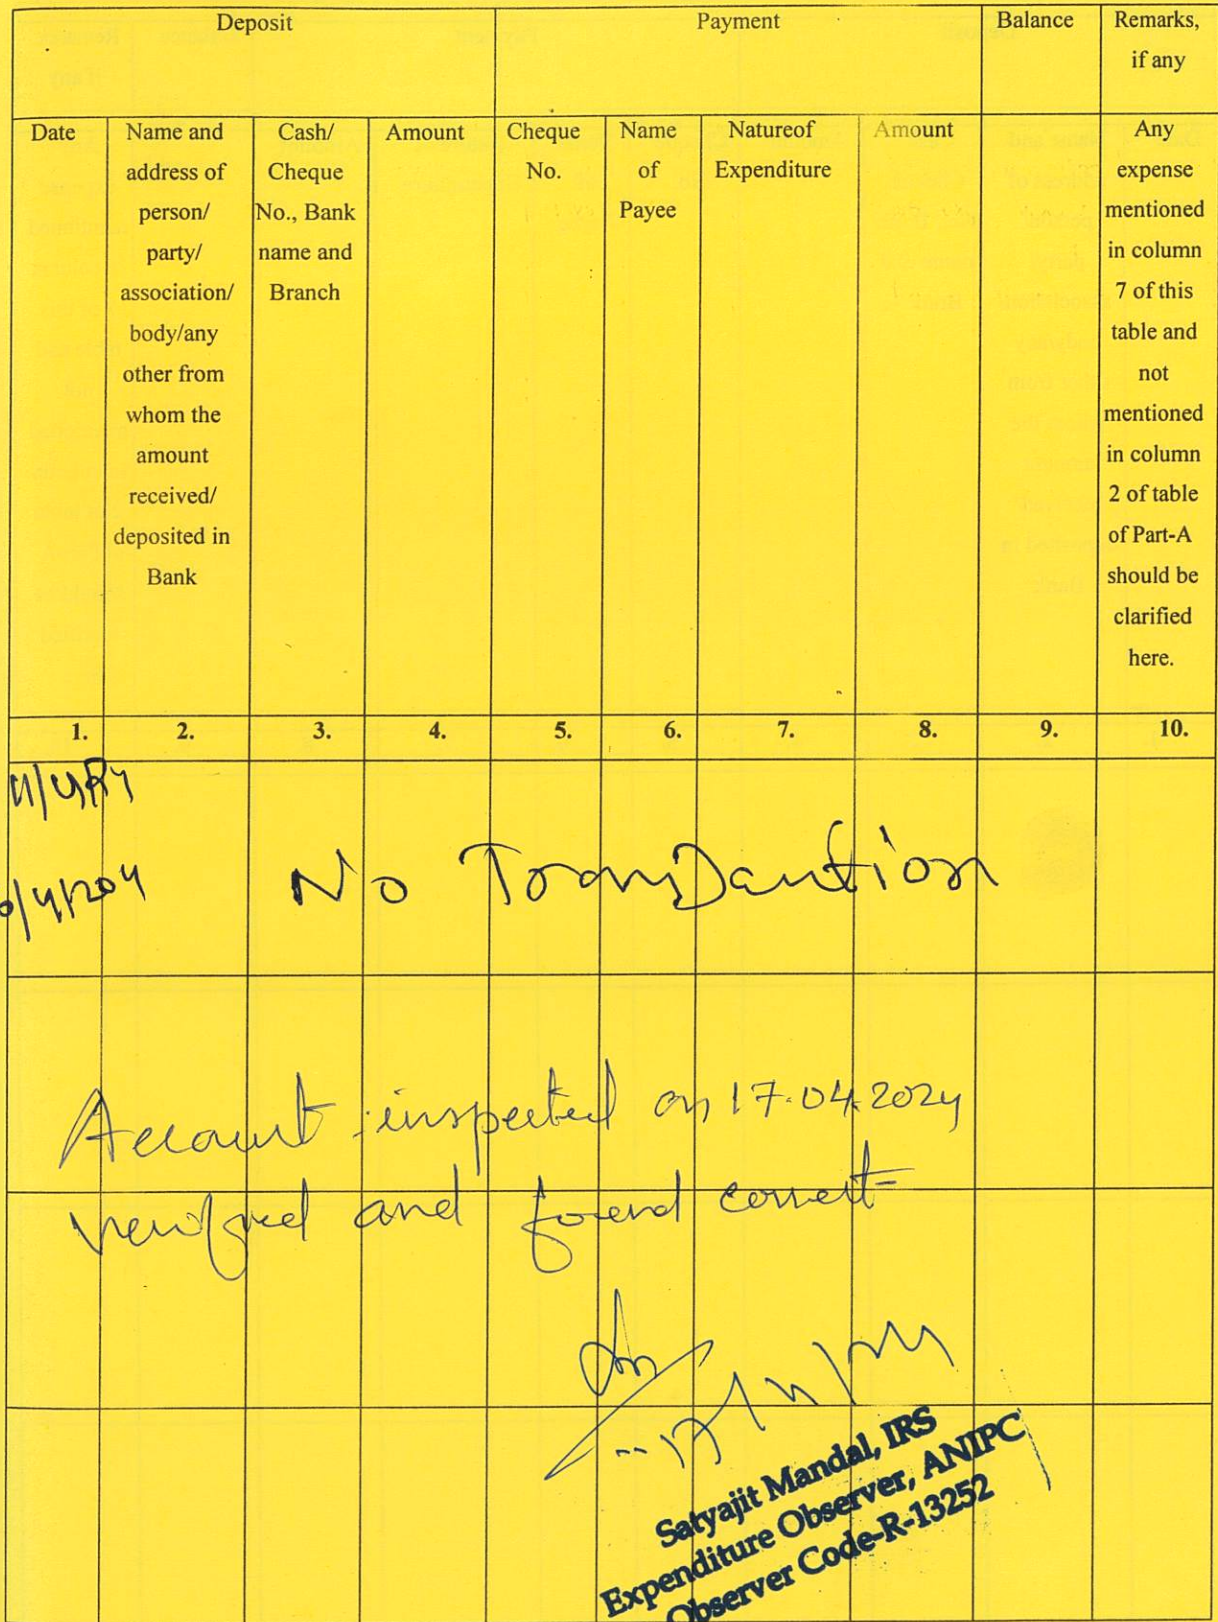 Deposit Payment Balance Remarks, if any
Date
Name and address of person/ party/ association/ body/any other from whom the amount received/ deposited in Bank
Cash/ Cheque No., Bank name and Branch
Amount
Cheque No.
Name of Payee
Natureof Expenditure
Amount
Any expense mentioned in column 7 of this table and not mentioned in column 2 of table of Part-A should be clarified here.
1. 2. 3. 4. 5. 6. 7. 8. 9. 10.
No
Account inspected on 17.04.2024
verified and found correct
Satyajit Mandal, IRS
Expenditure Observer, ANIPC
Observer Code-R-13252